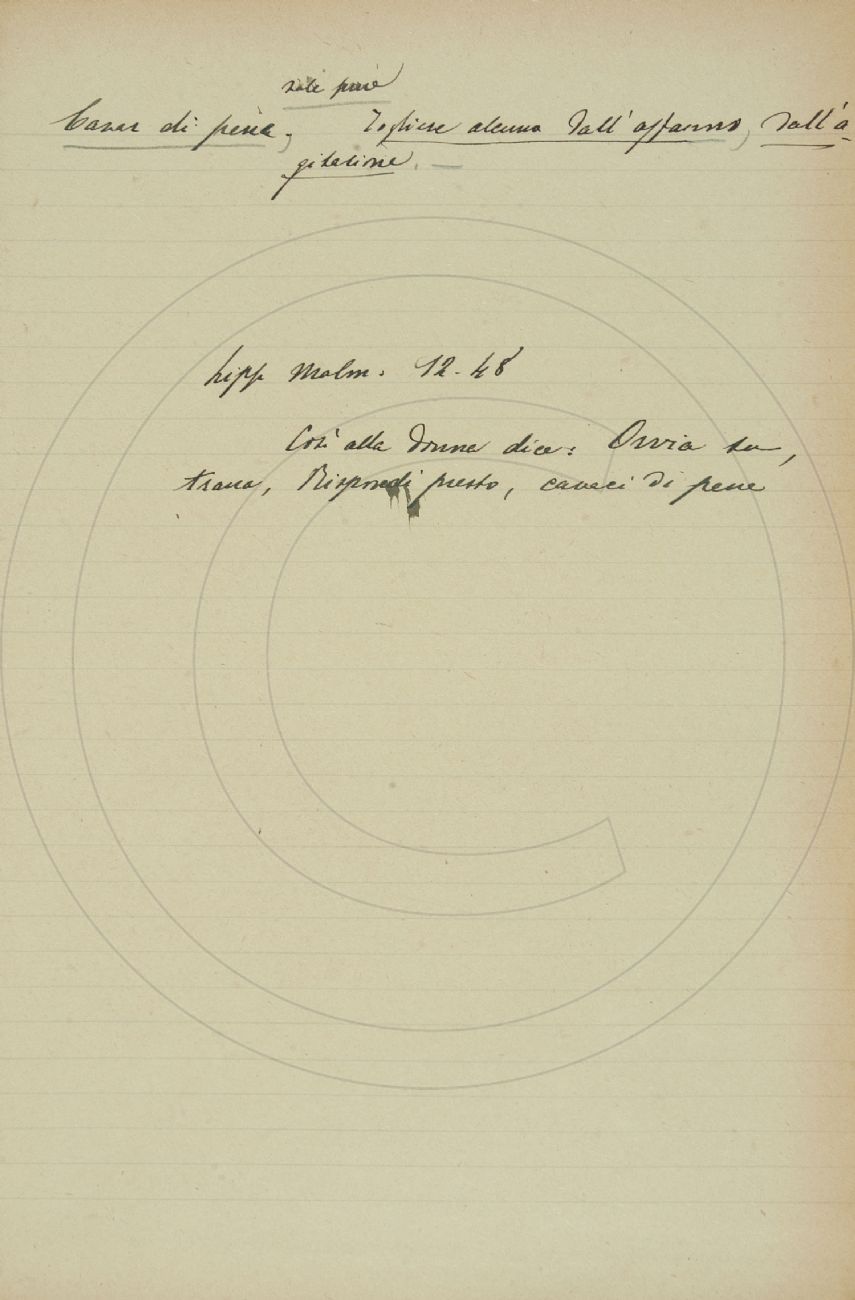 Cavar di pena, Togliere alcuno dall'affanno, dall'a-
gitazione. —
Lipp Malm. 12-48
Così alla donna dice: Orvia su,
trana, Rispondi presto, cavaci di pene